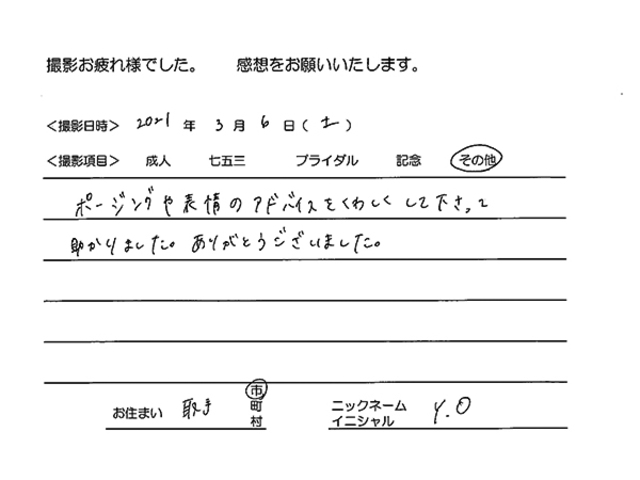 撮影お疲れ様でした。 感想をお願いいたします。
<撮影日時> 2021 年 3 月 6 日 ( 土 )
<撮影項目> 成人 七五三 ブライダル 記念 その他
ポージングや表情のアドバイスをくわしくして下さって
助かりました。ありがとうございました。
お住まい 取手 市 町 村
ニックネーム イニシャル Y.O